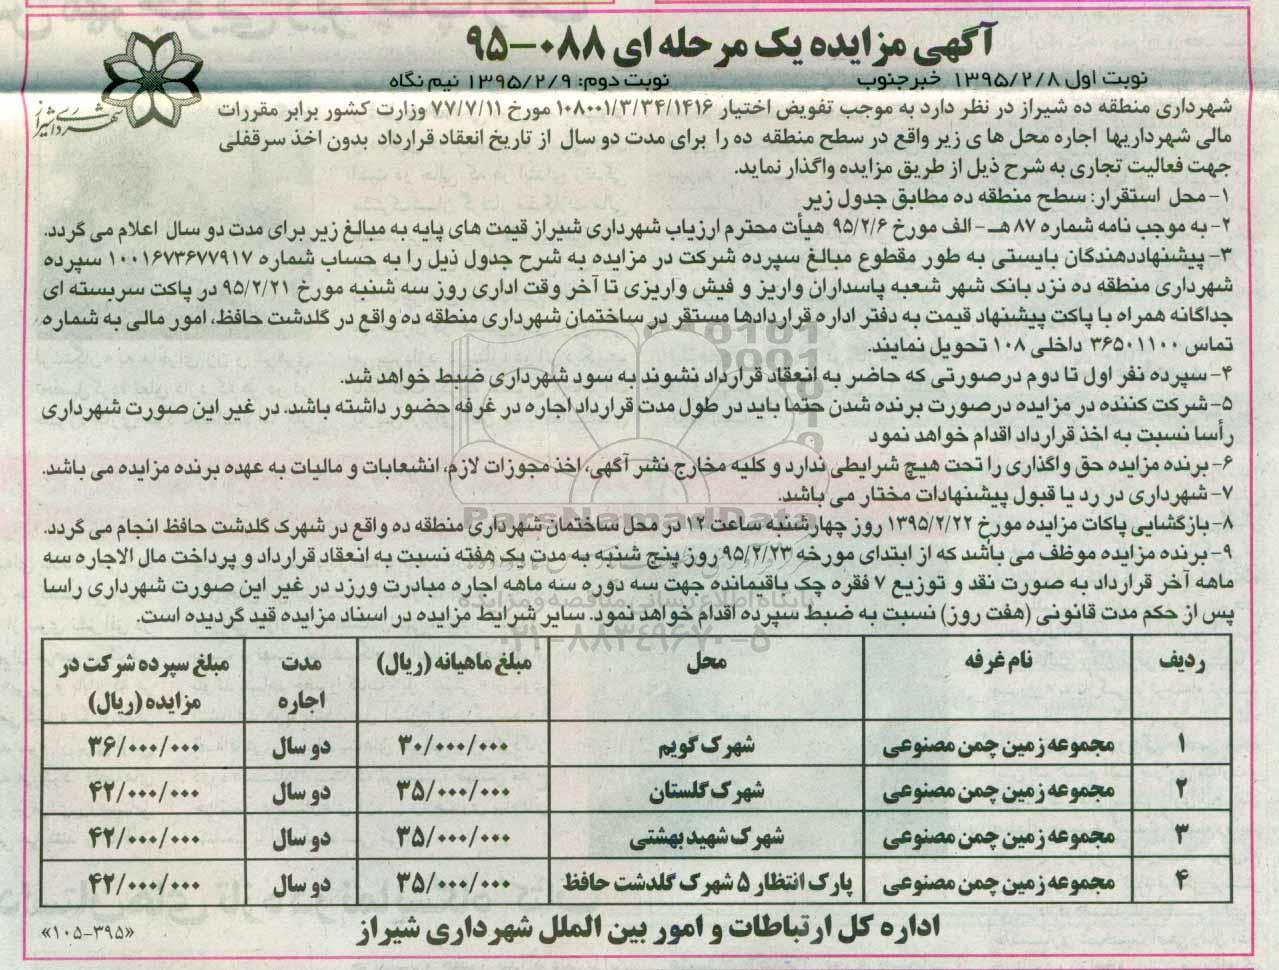 آگهی مزایده یک مرحله ای ۰۸۸-۹۵
نوبت اول ۱۳۹۵/۲/۸ خبرجنوب
نوبت دوم: ۱۳۹۵/۲/۹ نیم نگاه
شهرداری شیراز
شهرداری منطقه ده شیراز در نظر دارد به موجب تفویض اختیار ۱۰۸۰۰۱/۳/۳۴/۱۴۱۶ مورخ ۷۷/۷/۱۱ وزارت کشور برابر مقررات
مالی شهرداریها اجاره محل ها ی زیر واقع در سطح منطقه ده را برای مدت دو سال از تاریخ انعقاد قرارداد بدون اخذ سرقفلی
جهت فعالیت تجاری به شرح ذیل از طریق مزایده واگذار نماید.
۱- محل استقرار: سطح منطقه ده مطابق جدول زیر
۲- به موجب نامه شماره ۸۷ هـ - الف مورخ ۹۵/۲/۶ هیأت محترم ارزیاب شهرداری شیراز قیمت های پایه به مبالغ زیر برای مدت دو سال اعلام می گردد.
۳- پیشنهاددهندگان بایستی به طور مقطوع مبالغ سپرده شرکت در مزایده به شرح جدول ذیل را به حساب شماره ۱۰۰۱۶۷۳۶۷۷۹۱۷ سپرده
شهرداری منطقه ده نزد بانک شهر شعبه پاسداران واریز و فیش واریزی تا آخر وقت اداری روز سه شنبه مورخ ۹۵/۲/۲۱ در پاکت سربسته ای
جداگانه همراه با پاکت پیشنهاد قیمت به دفتر اداره قراردادها مستقر در ساختمان شهرداری منطقه ده واقع در گلدشت حافظ، امور مالی به شماره
تماس ۳۶۵۰۱۱۰۰ داخلی ۱۰۸ تحویل نمایند.
۴- سپرده نفر اول تا دوم درصورتی که حاضر به انعقاد قرارداد نشوند به سود شهرداری ضبط خواهد شد.
۵- شرکت کننده در مزایده درصورت برنده شدن حتما باید در طول مدت قرارداد اجاره در غرفه حضور داشته باشد. در غیر این صورت شهرداری
رأسا نسبت به اخذ قرارداد اقدام خواهد نمود
۶- برنده مزایده حق واگذاری را تحت هیچ شرایطی ندارد و کلیه مخارج نشر آگهی، اخذ مجوزات لازم، انشعابات و مالیات به عهده برنده مزایده می باشد.
۷- شهرداری در رد یا قبول پیشنهادات مختار می باشد.
۸- بازگشایی پاکات مزایده مورخ ۱۳۹۵/۲/۲۲ روز چهارشنبه ساعت ۱۲ در محل ساختمان شهرداری منطقه ده واقع در شهرک گلدشت حافظ انجام می گردد.
۹- برنده مزایده موظف می باشد که از ابتدای مورخه ۹۵/۲/۲۳ روز پنج شنبه به مدت یک هفته نسبت به انعقاد قرارداد و پرداخت مال الاجاره سه
ماهه آخر قرارداد به صورت نقد و توزیع ۷ فقره چک باقیمانده جهت سه دوره سه ماهه اجاره مبادرت ورزد در غیر این صورت شهرداری راسا
پس از حکم مدت قانونی (هفت روز) نسبت به ضبط سپرده اقدام خواهد نمود. سایر شرایط مزایده در اسناد مزایده قید گردیده است.
ردیف نام غرفه محل مبلغ ماهیانه (ریال) مدت اجاره مبلغ سپرده شرکت در مزایده (ریال)
۱ مجموعه زمین چمن مصنوعی شهرک گویم ۳۰/۰۰۰/۰۰۰ دو سال ۳۶/۰۰۰/۰۰۰
۲ مجموعه زمین چمن مصنوعی شهرک گلستان ۳۵/۰۰۰/۰۰۰ دو سال ۴۲/۰۰۰/۰۰۰
۳ مجموعه زمین چمن مصنوعی شهرک شهید بهشتی ۳۵/۰۰۰/۰۰۰ دو سال ۴۲/۰۰۰/۰۰۰
۴ مجموعه زمین چمن مصنوعی پارک انتظار ۵ شهرک گلدشت حافظ ۳۵/۰۰۰/۰۰۰ دو سال ۴۲/۰۰۰/۰۰۰
اداره کل ارتباطات و امور بین الملل شهرداری شیراز
«۱۰۵-۳۹۵»
ParsNamadData
پایگاه اطلاع رسانی مناقصه و مزایده
۰۲۱-۸۸۳۴۹۶۷۰-۵